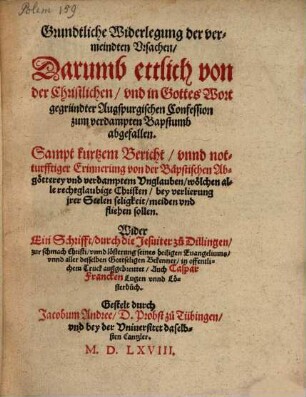 Polem 159
Grundtliche Widerlegung der ver-
meindten Vrsachen/
Darumb ettlich von
der Christlichen / vnd in Gottes Wort
gegründter Augspurgischen Confession
zum verdampten Bapstumb
abgefallen.
Sampt kurtzem Bericht / vnnd not-
turfftiger Erinnerung von der Bäpstischen Ab-
götterey vnd verdamptem Vnglauben / wölchen al-
le rechtglaubige Christen / bey verlierung
jrer Seelen seligkeit / meiden vnd
fliehen sollen.
Wider
Ein Schrifft / durch die Jesuiter zů Dillingen /
zur schmach Christi / vnnd lösterung seines heiligen Euangeliums /
vnnd aller desselben Gottseligen Bekenner / in offentli-
chem Truck außgebreittet / Auch Caspar
Francken Lugen vnnd Lö-
sterbůch.
Gestelt durch
Jacobum Andree / D. Probst zů Tübingen /
vnd bey der Vniuersitet daselb-
sten Cantzler.
M. D. LXVIII.